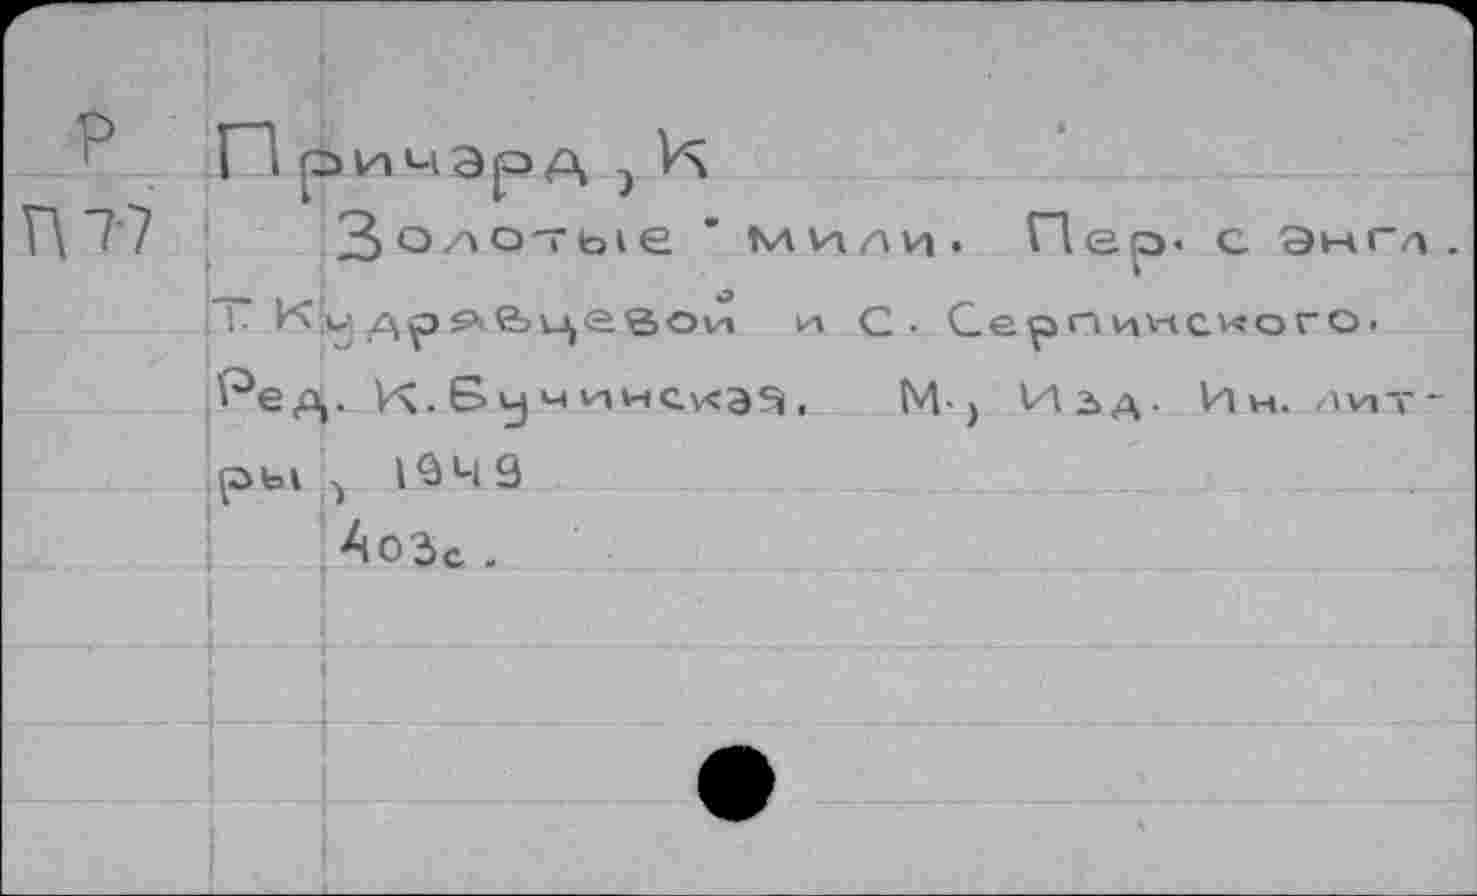 Р Причард, К
П 77 Золотые мили. Пер. с англ.
Т. Кудрявцевой и С. Серпинского.
Ред. К. Бучинская. М., Изд. Ин. лит-
ры, 1949
403с.